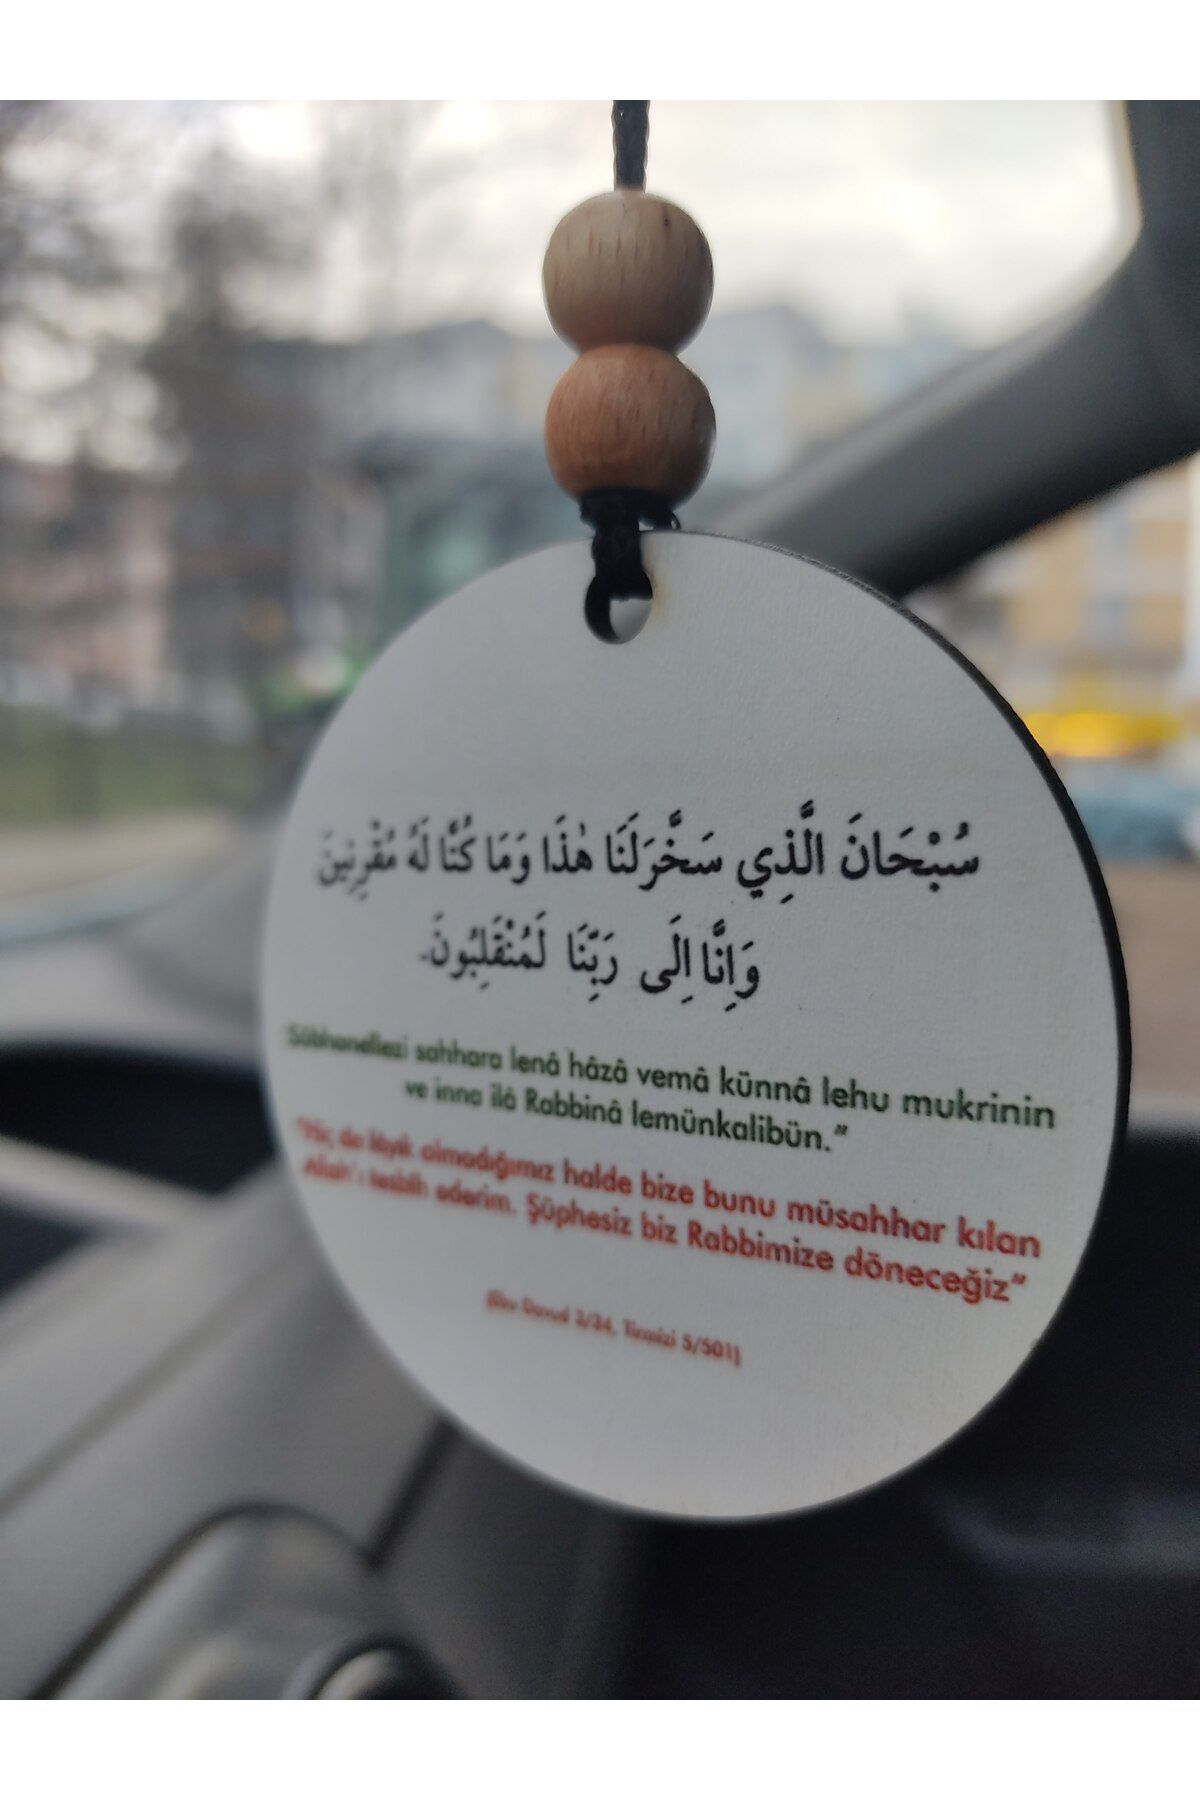 سُبْحَانَ الَّذِي سَخَّرَلَنَا هٰذَا وَمَا كُنَّا لَهُ مُقْرِنِينَ
وَاِنَّا اِلَى رَبِّنَا لَمُنْقَلِبُونَ.
Sübhanellezi sahhara lenâ hâzâ vemâ künnâ lehu mukrinin
ve inna ilâ Rabbinâ lemünkalibün.”
"Hiç de lâyık olmadığımız halde bize bunu müsahhar kılan
Allah'ı tesbih ederim. Şüphesiz biz Rabbimize döneceğiz”
(Ebu Davud 3/34, Tirmizi 5/501)